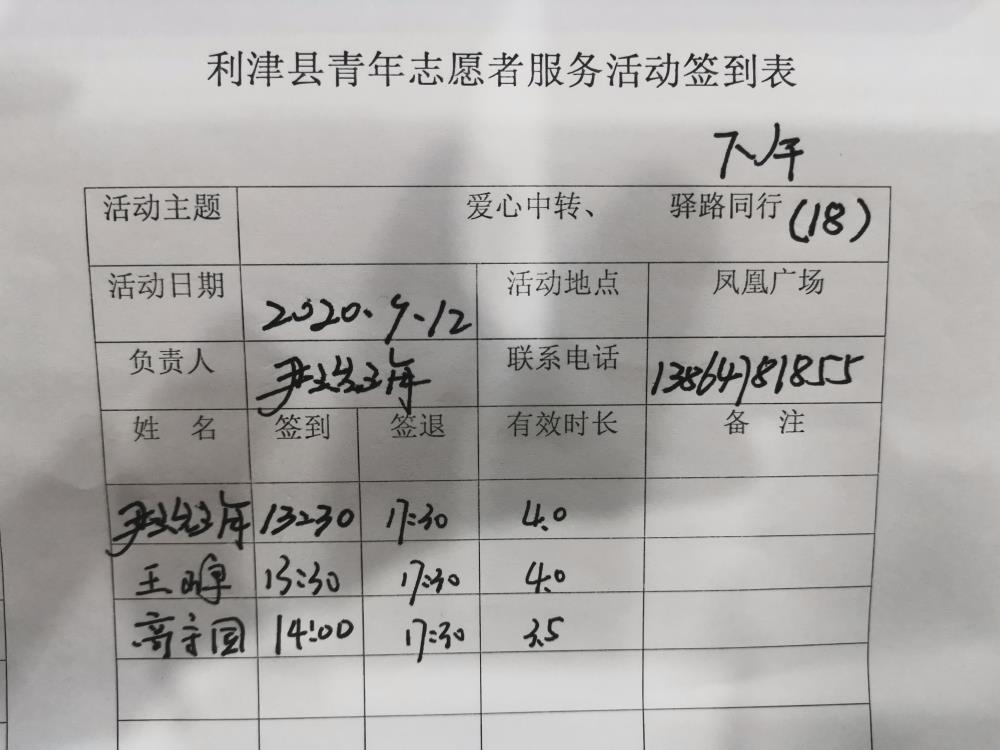 利津县青年志愿者服务活动签到表
下午
活动主题 爱心中转、 驿路同行 (18)
活动日期 2020.9.12 活动地点 凤凰广场
负责人 联系电话 13864781855
姓 名 签到 签退 有效时长 备 注
13:30 17:30 4.0
王 13:30 17:30 4.0
高守国 14:00 17:30 3.5